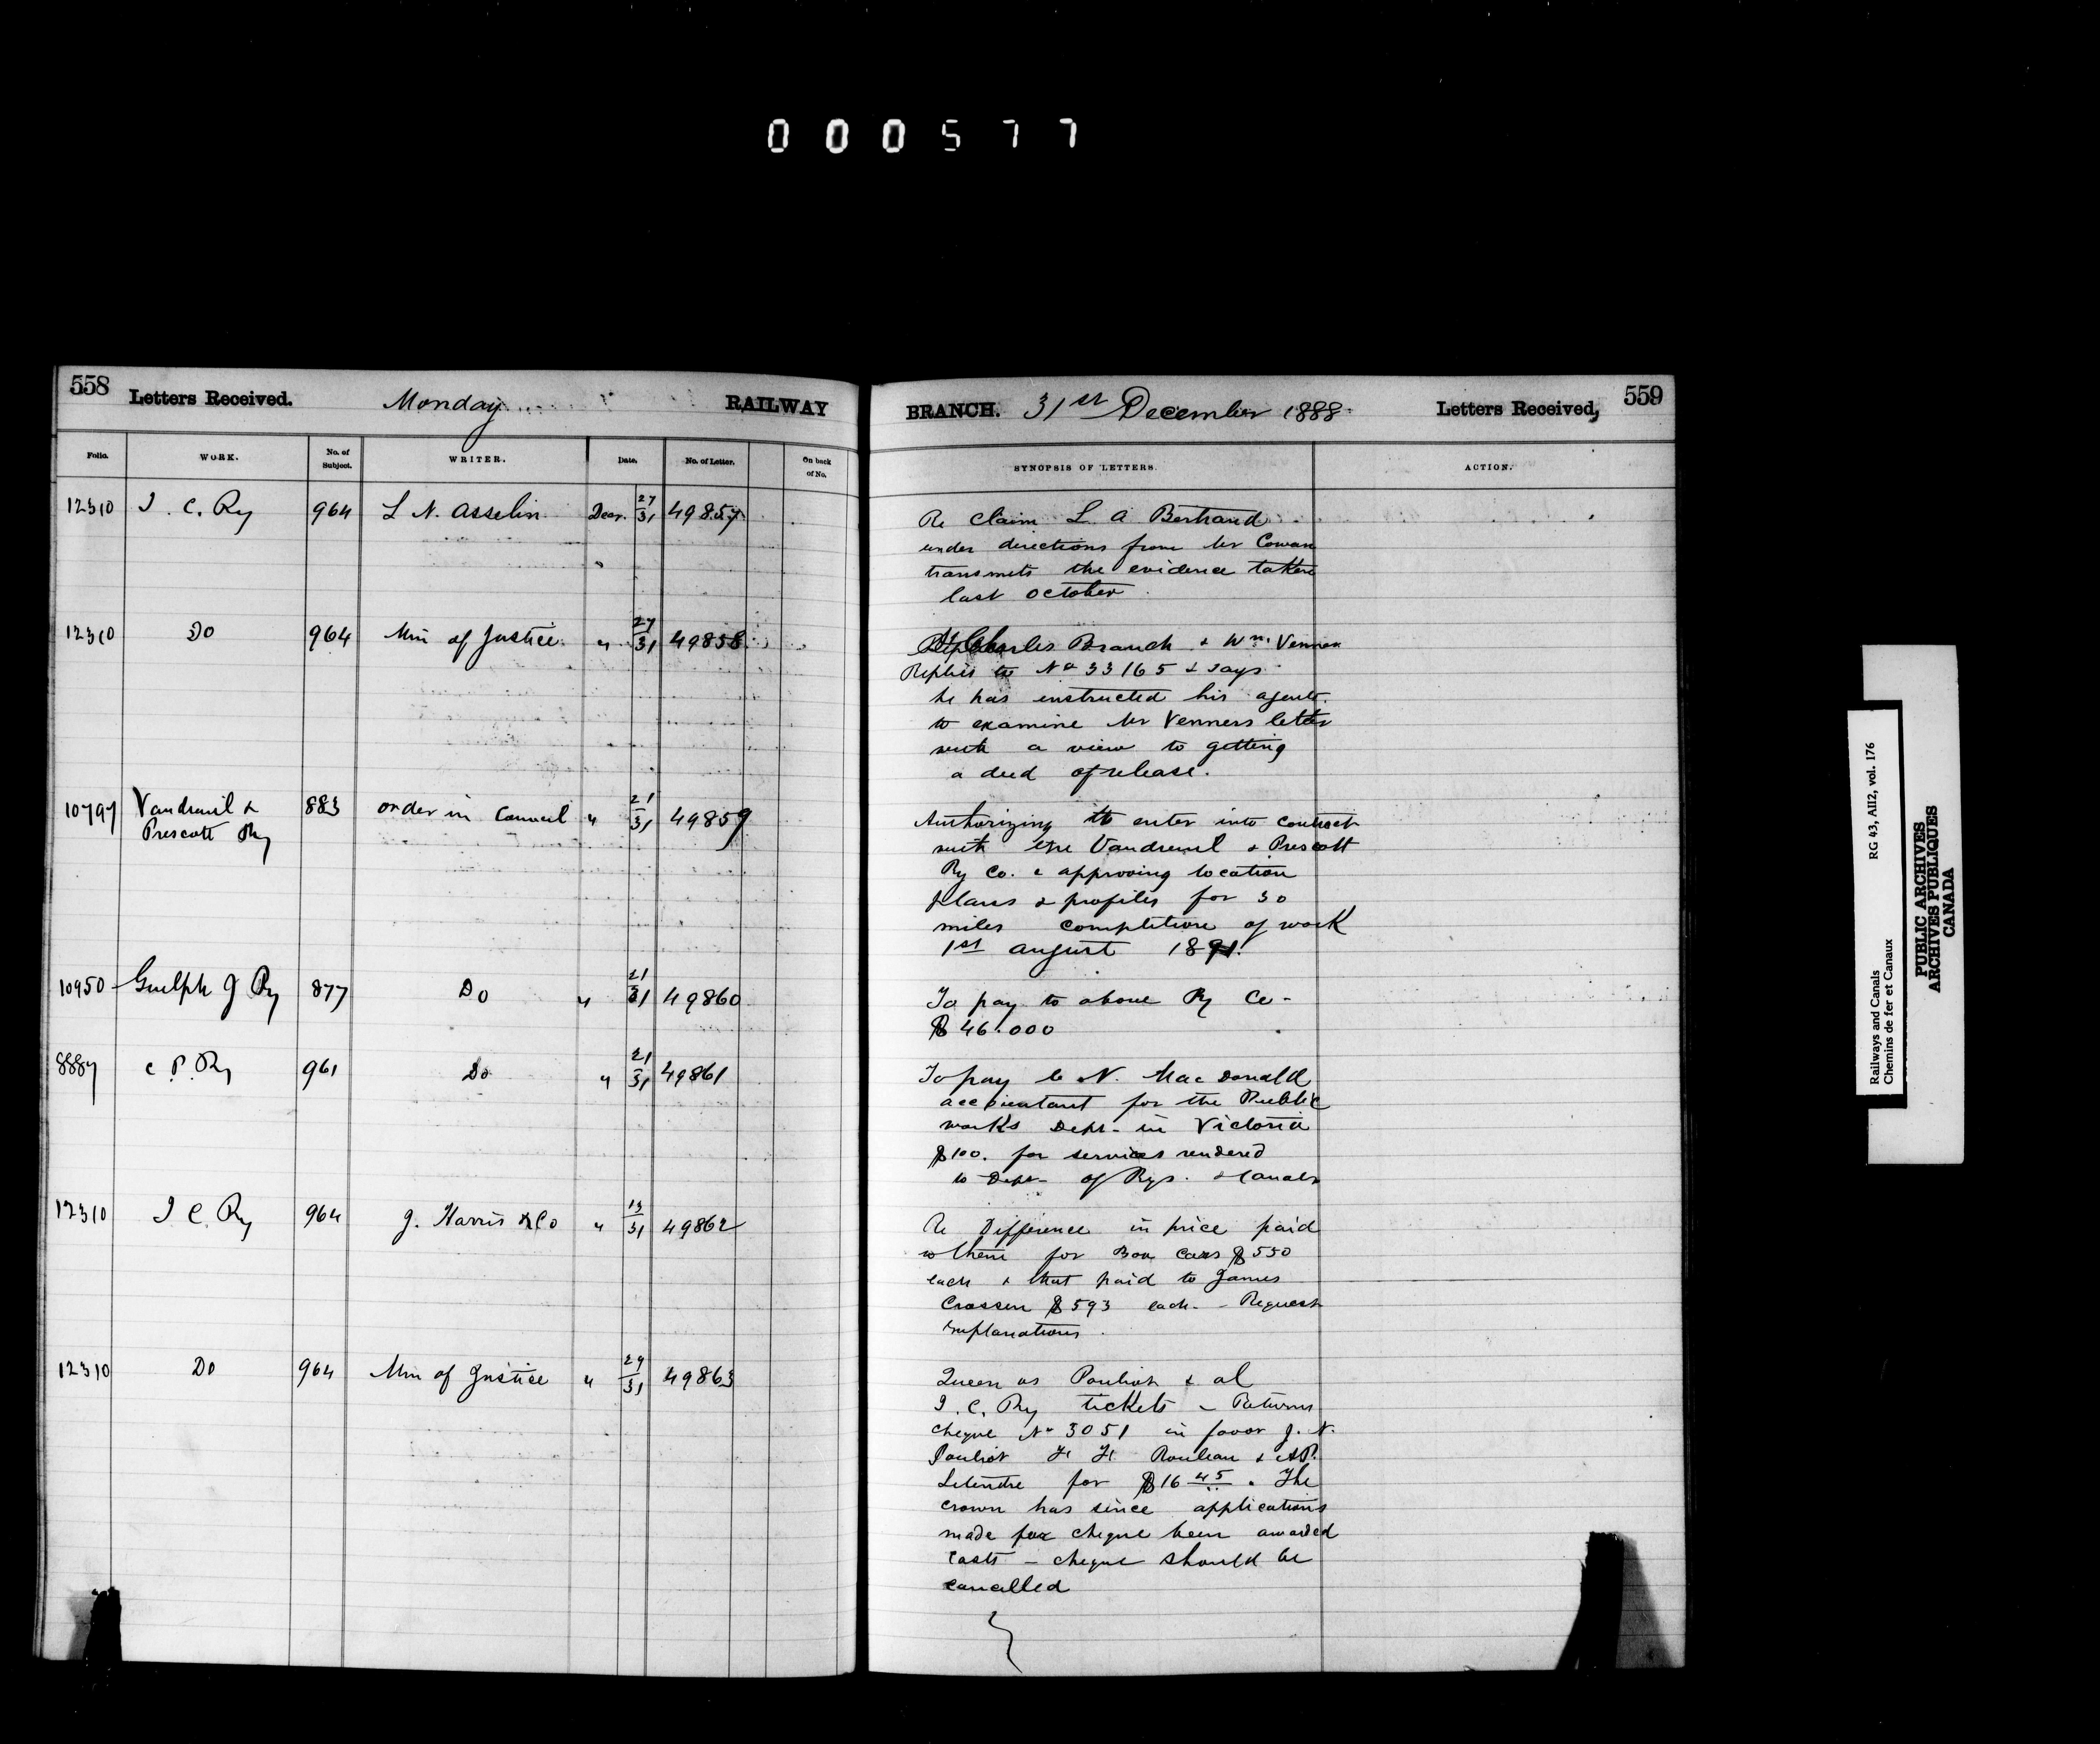 000577
558 Letters Received. Monday RAILWAY
Folio. WORK. No. of Subject. WRITER. Date. No. of Letter. On back of No.
12310 I. C. Ry 964 L N. Asselin Decr. 27/31 49857
12310 Do 964 Min of Justice " 27/31 49858
10797 Vaudreuil & 883 order in Council " 21/31 49859
Prescott Ry
10950 Guelph J Ry 877 Do " 21/31 49860
8887 C. P. Ry 961 Do " 21/31 49861
12310 I C. Ry 964 J. Harris & Co " 13/31 49862
12310 Do 964 Min of Justice " 29/31 49863
BRANCH. 31st December 1888. Letters Received, 559
SYNOPSIS OF LETTERS. ACTION.
Re Claim L. A Bertrand
under directions from Mr Cowan
transmits the evidence taken
last October
Charles Branch & Wm. Venner
Replies to No 33165 & says
he has instructed his agents
to examine Mr Venners letter
with a view to getting
a deed of release.
Authorizing to enter into contract
with the Vaudreuil & Prescott
Ry Co. & approving location
plans & profiles for 30
miles completion of work
1st August 1891.
To pay to above Ry Co -
$46.000
To pay to N. MacDonald
accountant for the Public
works Dept - in Victoria
$100. for services rendered
to Dept - of Rys. & Canals
Re Difference in price paid
to them for Box Cars $550
each & that paid to James
Crossen $593 each - Request
explanations.
Queen vs Pouliot & al
I. C. Ry tickets - Returns
cheque No 3051 in favor J. N.
Pouliot H H Rouleau & A P.
Letendre for $16 45. The
crown has since applications
made for cheque been awarded
costs - cheque should be
cancelled
Railways and Canals RG 43, AII2, vol. 176
Chemins de fer et Canaux
PUBLIC ARCHIVES
ARCHIVES PUBLIQUES
CANADA